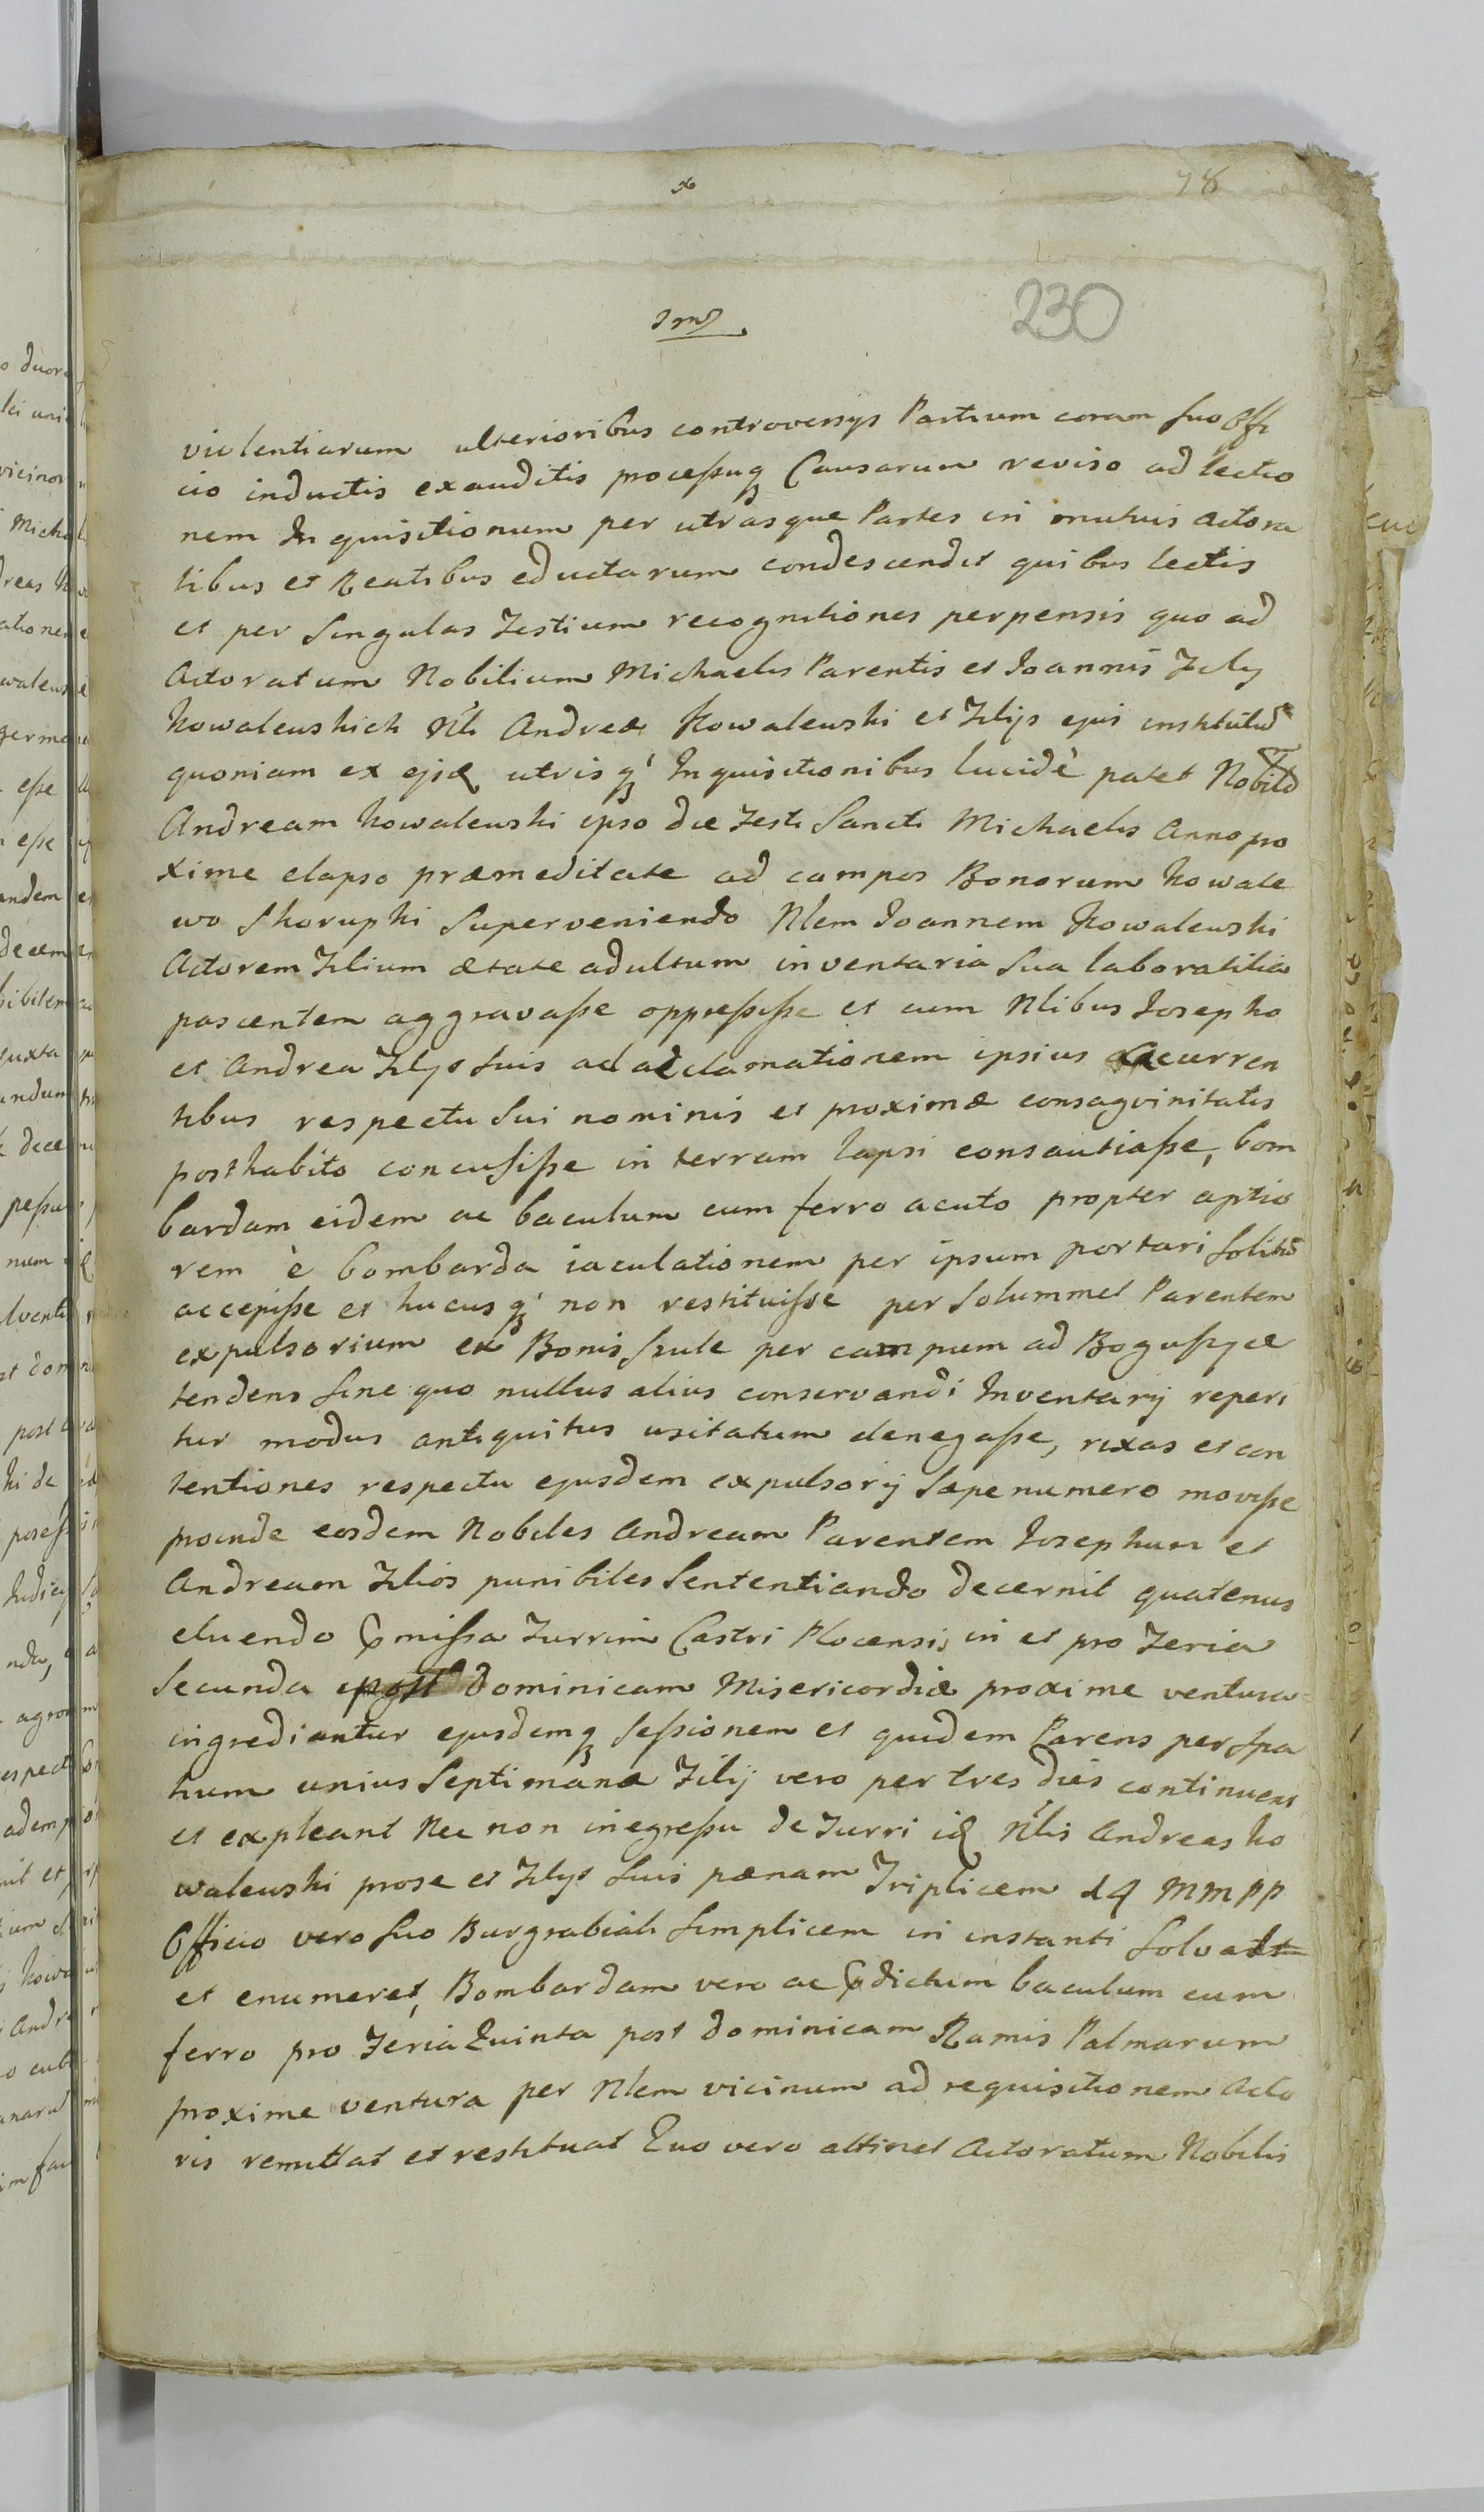 78
230
violentiarum ulterioribus controversys Partium coram suo Offi
cio inductis exauditis processuq Causarum reviso ad lectio
nem Inquisitionum per utrasque Partes in mutuis actora
tibus et Reatibus eductarum condescendit quibus lectis
et per singulas Testium recognitiones perpensis quo ad
Actoratum Nobilium Michaelis Parentis et Joannis Fily
Kowalewskich Nli Andreæ Kowalewski et Filijs ejus institutu
quoniam ex ejsd utrisq Inquisitionibus lucidè patet Nobile
Andream Kowalewski ipso die Festi Sancti Michaelis Anno pro
xime elapso præmeditate ad campos Bonorum Kowale
wo Skorupki superveniendo Nlem Joannem Kowalewski
Actorem Filium ætate adultum inventaria sua laboratilia
pascentem aggravasse oppressisse et cum Nlibus Josepho
et Andrea Filys suis ad acclamationem ipsius accurren
tibus respectu sui nominis et proximæ consagvinitatis
posthabito concussisse in terram lapsi consautiasse, bom
bardam eidem ac baculum cum ferro acuto propter aptio
rem è bombarda iaculationem per ipsum portari solitū
accepisse et hucusq non restituisse per solummet Parentem
expulsorium ex Bonis Szule per campum ad Boguszyce
tendens sine quo nullus alius conservandi Inventarij reperi
tur modus antiquitus usitatum denegasse, rixas et con
tentiones respectu ejusdem expulsorij sæpenumero movisse
proinde eosdem Nobiles Andream Parentem Josephum et
Andream Filios punibiles sententiando decernit quatenus
eluendo pmissa Turrim Castri Plocensis in et pro Feria
Secunda post Dominicam Misericordiæ proxime ventura
ingrediantur ejusdemq sessionem et quidem Parens per spa
tium unius septimanæ Filij vero per tres dies continuent
et expleant Nec non in egressu de Turri id Nlis Andreas Ko
walewski pro se et Filys suis pænam Triplicem 14 MMPP
Officio vero suo Burgrabiali simplicem in instanti solvat
et enumeret, Bombardam vero ac pdictum baculum cum
ferro pro Feria Quinta post Dominicam Ramis Palmarum
proxime ventura per Nlem vicinum ad requisitionem Acto
ris remittat et restituat Quo vero attinet Actoratum Nobilis